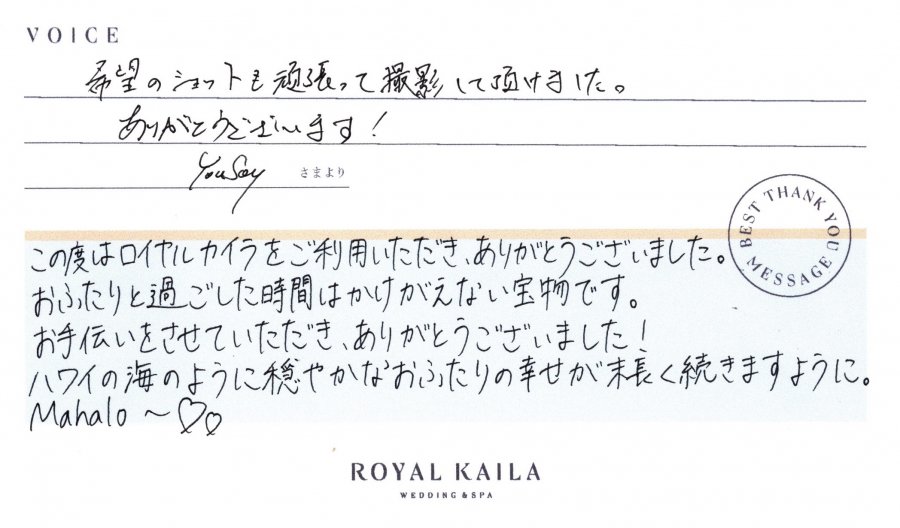 VOICE
希望のショットも頑張って撮影して頂けました。
ありがとうございます!
YouSay さまより
BEST THANK YOU MESSAGE
この度はロイヤルカイラをご利用いただき、ありがとうございました。
おふたりと過ごした時間はかけがえない宝物です。
お手伝いをさせていただき、ありがとうございました!
ハワイの海のように穏やかなおふたりの幸せが末長く続きますように。
Mahalo~♡♡
ROYAL KAILA
WEDDING & SPA